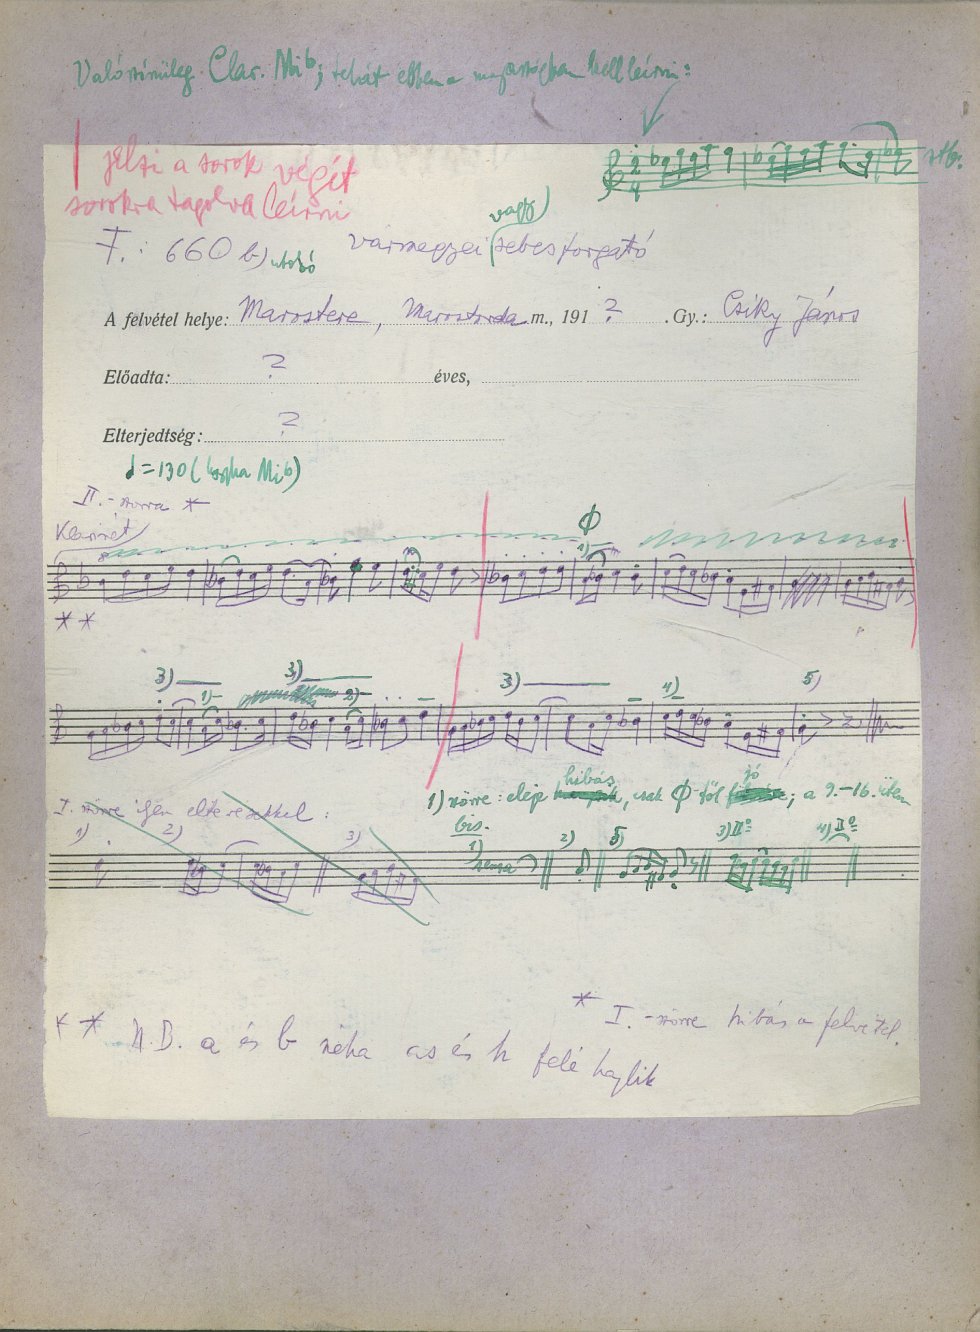 Valószínűleg Clar. Mi♭; tehát ebben a magasságban kell leírni:
jelzi a sorok végét
stb.
sorokra tagolva leírni
vagy
F.: 660 b) utolsó vármegyei sebesforgató
A felvétel helye: Marostere, Marostorda m., 191 ? . Gy.: Csiky János
Előadta: ? éves,
Elterjedtség: ?
= 130 ( Mi♭)
II.-szorra *
Klarinét
Φ
1)
* *
3) 3) 3) 4) 5)
1) 2)
1) szörre: eleje hibás, csak Φ-től jó; a 9.–16. ütem
I. szörre igen eltérésekkel:
bis.
1) 2) 3) 1) 2) 5) 3) II° 4) II°
* I.-szörre hibás a felvétel.
* * N.B. a és b néha as és h felé hajlik